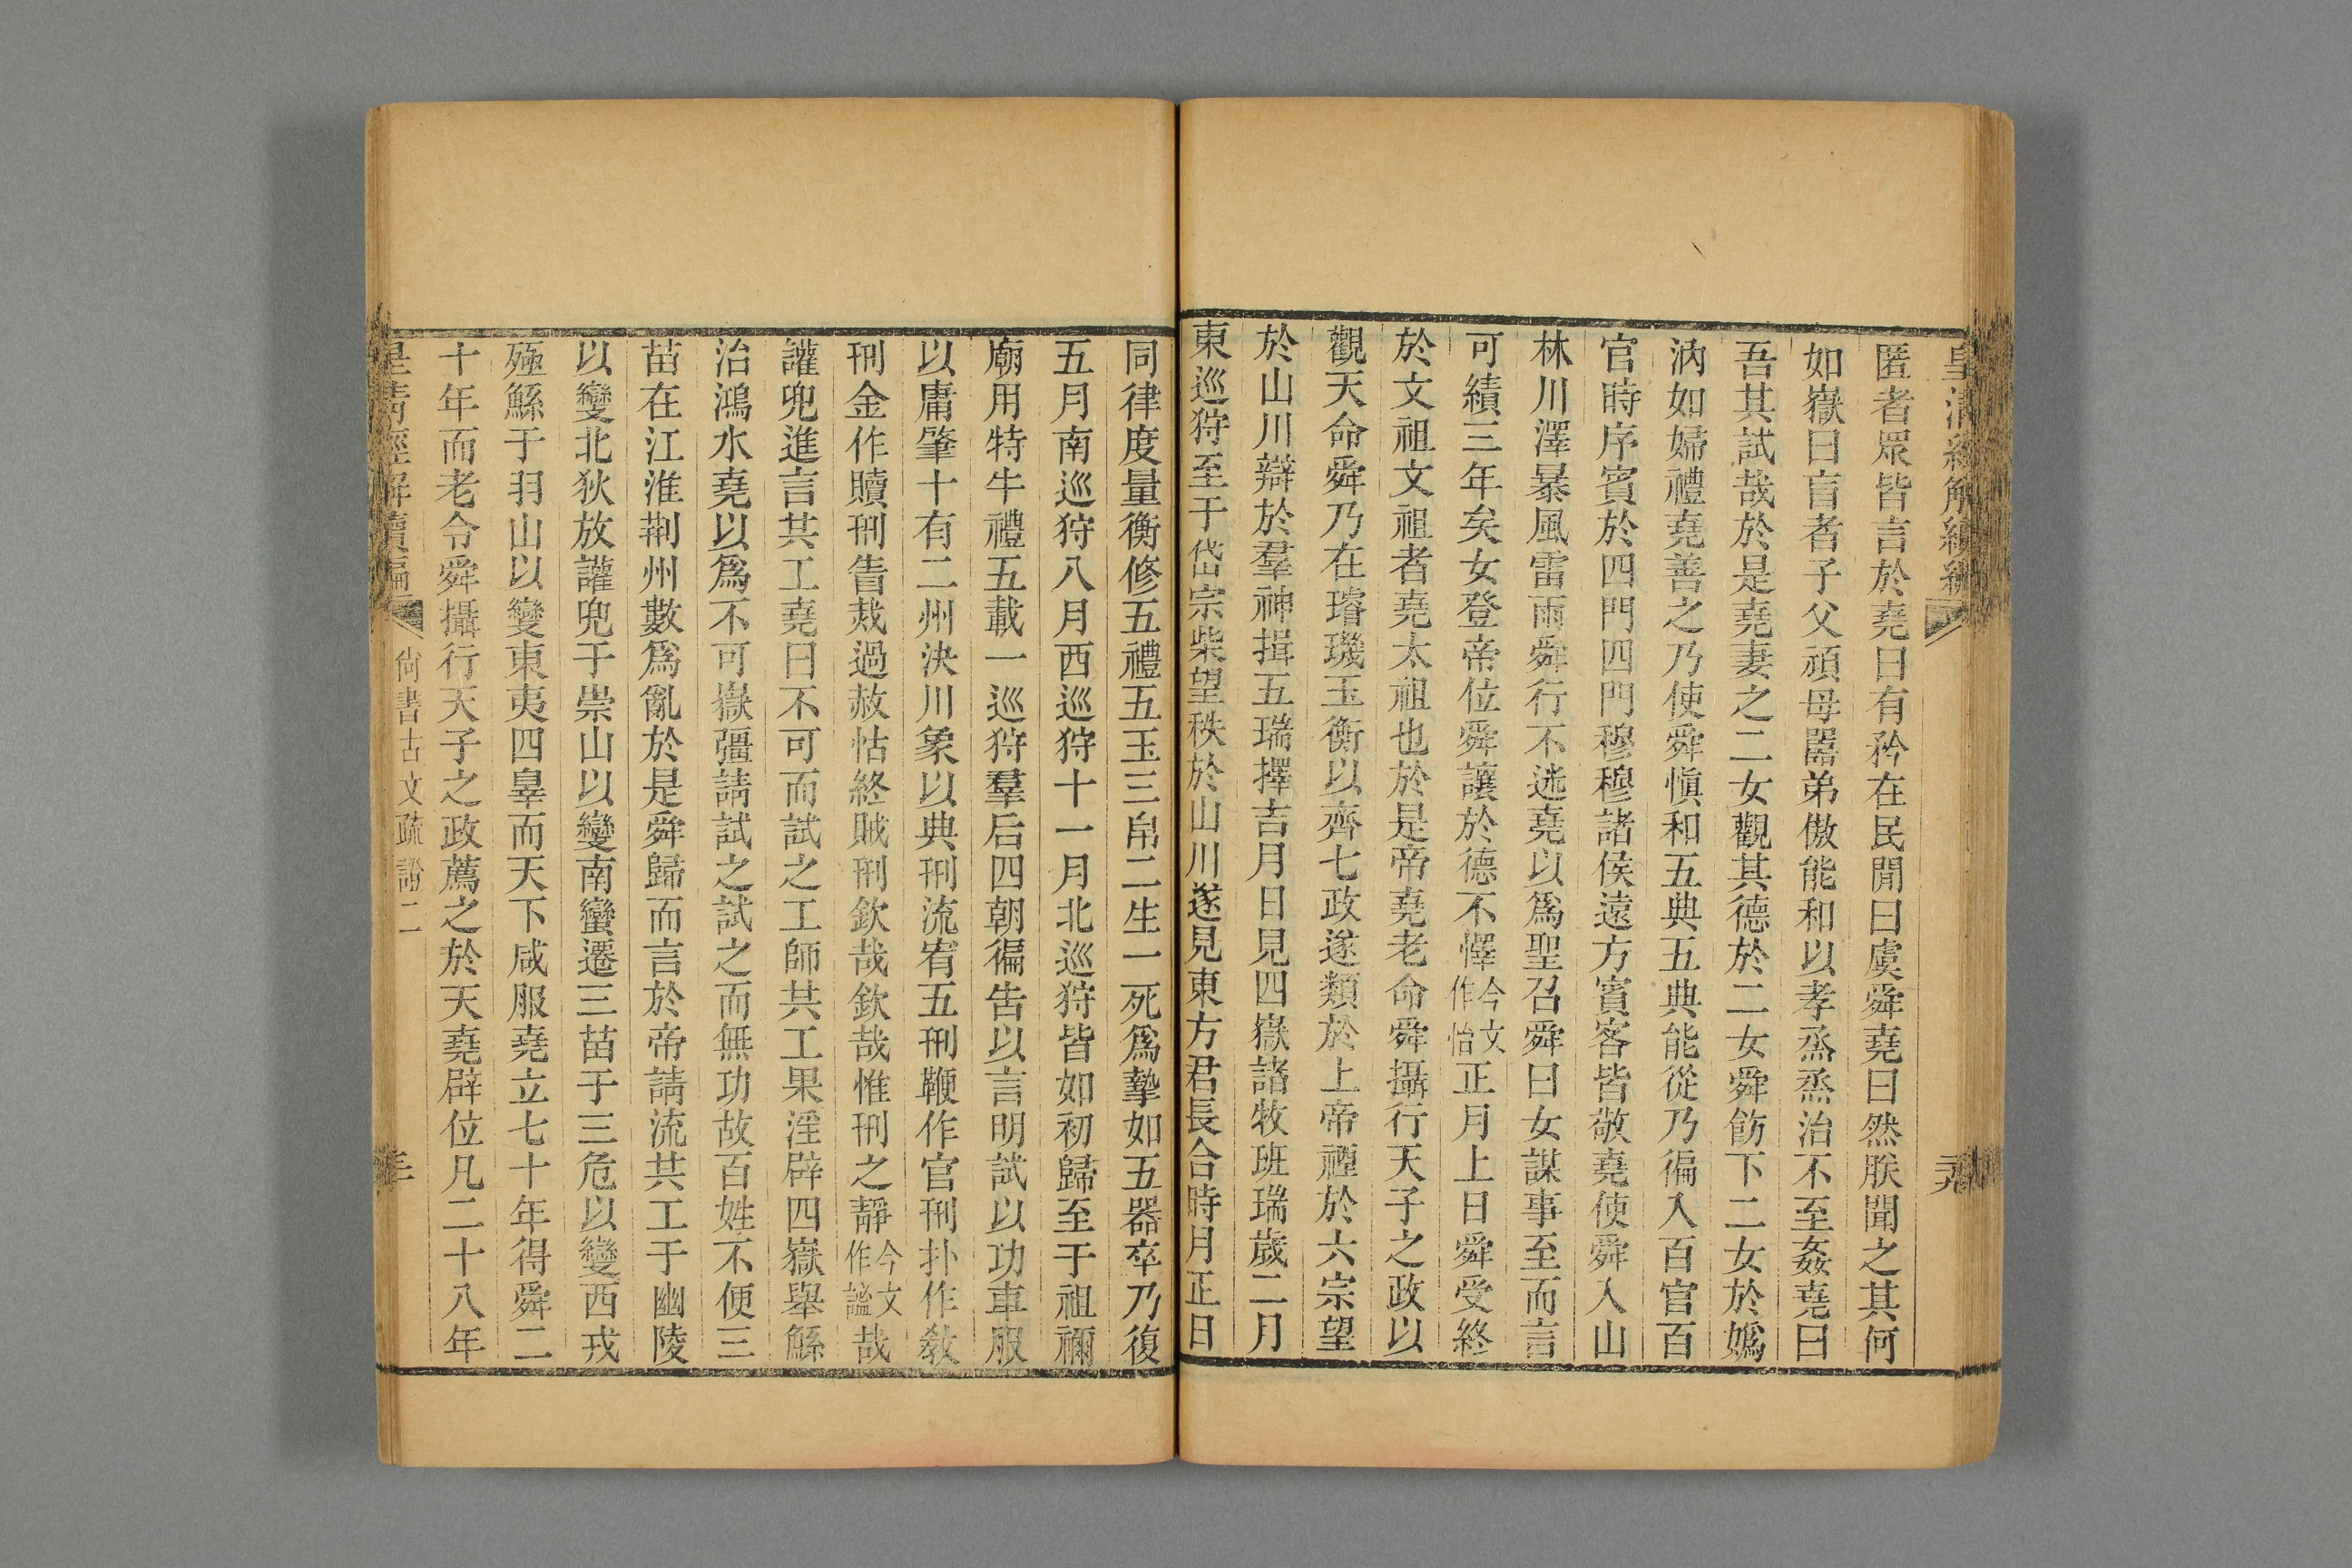 皇清經解續編
匿者眾皆言於堯曰有矜在民閒曰虞舜堯曰然朕聞之其何
如嶽曰盲者子父頑母嚚弟傲能和以孝烝烝治不至姦堯曰
吾其試哉於是堯妻之二女觀其德於二女舜飭下二女於嬀
汭如婦禮堯善之乃使舜慎和五典五典能從乃徧入百官百
官時序賓於四門四門穆穆諸侯遠方賓客皆敬堯使舜入山
林川澤暴風雷雨舜行不迷堯以爲聖召舜曰女謀事至而言
可績三年矣女登帝位舜讓於德不懌今文作怡正月上日舜受終
於文祖文祖者堯太祖也於是帝堯老命舜攝行天子之政以
觀天命舜乃在璿璣玉衡以齊七政遂類於上帝禋於六宗望
於山川辯於羣神揖五瑞擇吉月日見四嶽諸牧班瑞歲二月
東巡狩至于岱宗柴望秩於山川遂見東方君長合時月正日
同律度量衡修五禮五玉三帛二生一死爲摯如五器卒乃復
五月南巡狩八月西巡狩十一月北巡狩皆如初歸至于祖禰
廟用特牛禮五載一巡狩羣后四朝徧告以言明試以功車服
以庸肇十有二州決川象以典刑流宥五刑鞭作官刑扑作教
刑金作贖刑眚烖過赦怙終賊刑欽哉欽哉惟刑之靜今文作謐哉
讙兜進言共工堯曰不可而試之工師共工果淫辟四嶽舉鯀
治鴻水堯以爲不可嶽彊請試之試之而無功故百姓不便三
苗在江淮荆州數爲亂於是舜歸而言於帝請流共工于幽陵
以變北狄放讙兜于崇山以變南蠻遷三苗于三危以變西戎
殛鯀于羽山以變東夷四辠而天下咸服堯立七十年得舜二
十年而老令舜攝行天子之政薦之於天堯辟位凡二十八年
皇清經解續編 尚書古文疏證二